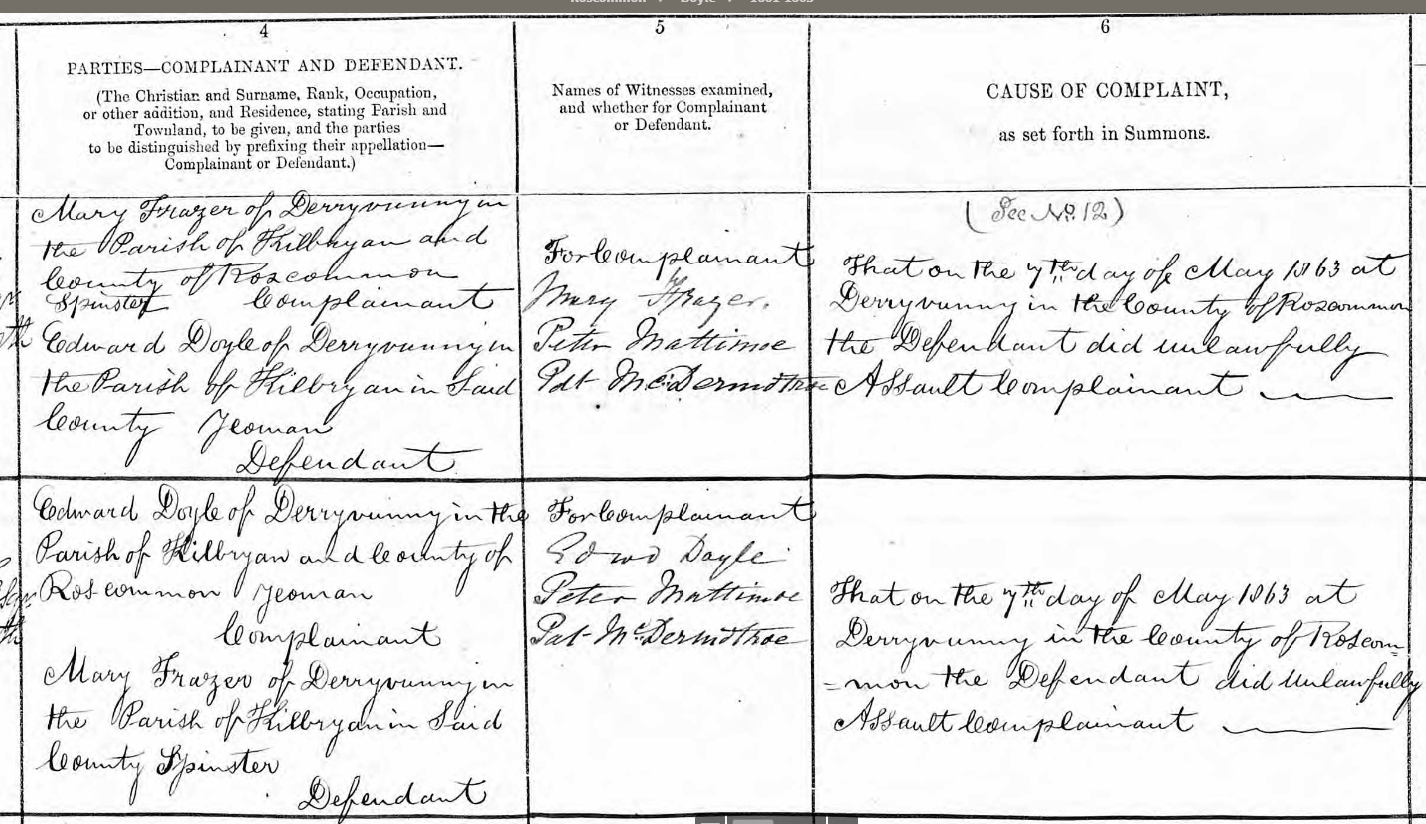 4
PARTIES—COMPLAINANT AND DEFENDANT.
(The Christian and Surname, Rank, Occupation,
or other addition, and Residence, stating Parish and
Townland, to be given, and the parties
to be distinguished by prefixing their appellation—
Complainant or Defendant.)
5
Names of Witnesses examined,
and whether for Complainant
or Defendant.
6
CAUSE OF COMPLAINT,
as set forth in Summons.
Mary Frazer of Derryvunny in
the Parish of Kilbryan and
County of Roscommon
Spinster Complainant
Edward Doyle of Derryvunny in
the Parish of Kilbryan in Said
County Yeoman
Defendant
For Complainant
Mary Frazer.
Peter Mattimoe
Pat McDermottroe
(See No. 12)
That on the 7th day of May 1863 at
Derryvunny in the County of Roscommon
the Defendant did unlawfully
Assault Complainant
Edward Doyle of Derryvunny in the
Parish of Kilbryan and County of
Roscommon Yeoman
Complainant
Mary Frazer of Derryvunny in
the Parish of Kilbryan in Said
County Spinster
Defendant
For Complainant
Edwd Doyle
Peter Mattimoe
Pat McDermottroe
That on the 7th day of May 1863 at
Derryvunny in the County of Roscom=
=mon the Defendant did unlawfully
Assault Complainant